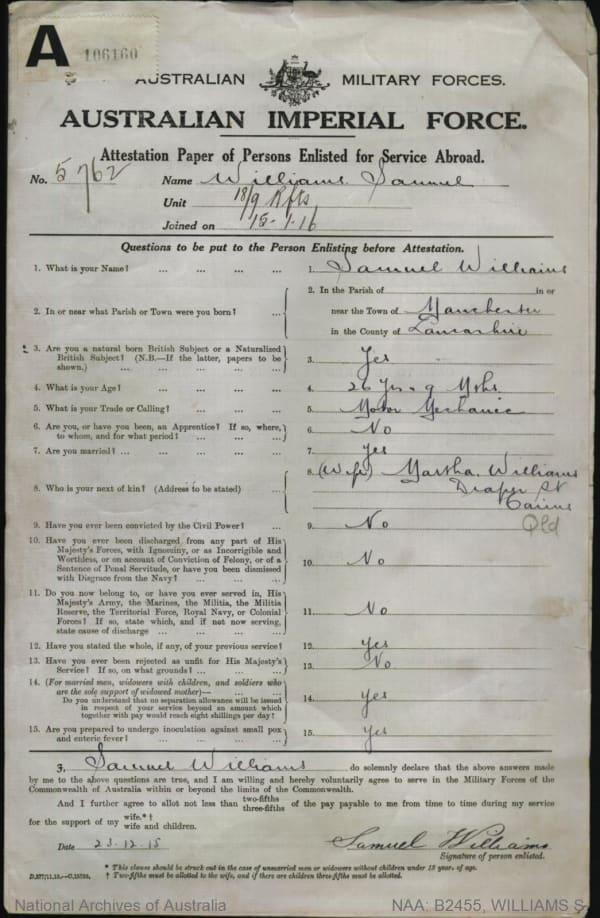 A
106160
AUSTRALIAN MILITARY FORCES.
AUSTRALIAN IMPERIAL FORCE.
Attestation Paper of Persons Enlisted for Service Abroad.
No. 5762 Name Williams Samuel
Unit 18/9 Rfts
Joined on 15-1-16
Questions to be put to the Person Enlisting before Attestation.
1. What is your Name? ... ... ... ... 1. Samuel Williams
2. In or near what Parish or Town were you born? ... 2. In the Parish of in or
near the Town of Manchester
in the County of Lancashire
3. Are you a natural born British Subject or a Naturalized
British Subject? (N.B.—If the latter, papers to be
shown.) ... ... ... ... 3. Yes
4. What is your Age? ... ... ... ... 4. 26 Yrs 9 Mths
5. What is your Trade or Calling? ... ... ... 5. Motor Mechanic
6. Are you, or have you been, an Apprentice? If so, where,
to whom, and for what period? ... ... ... 6. No
7. Are you married? ... ... ... ... ... 7. yes
8. Who is your next of kin? (Address to be stated) ... 8. (Wife) Martha Williams
Draper St
Cairns
Qld
9. Have you ever been convicted by the Civil Power? ... 9. No
10. Have you ever been discharged from any part of His
Majesty's Forces, with Ignominy, or as Incorrigible and
Worthless, or on account of Conviction of Felony, or of a
Sentence of Penal Servitude, or have you been dismissed
with Disgrace from the Navy? ... ... ... 10. No
11. Do you now belong to, or have you ever served in, His
Majesty's Army, the Marines, the Militia, the Militia
Reserve, the Territorial Force, Royal Navy, or Colonial
Forces? If so, state which, and if not now serving,
state cause of discharge ... ... ... ... 11. No
12. Have you stated the whole, if any, of your previous service? 12. yes
13. Have you ever been rejected as unfit for His Majesty's
Service? If so, on what grounds? ... ... ... 13. No
14. (For married men, widowers with children, and soldiers who
are the sole support of widowed mother)—
Do you understand that no separation allowance will be issued
in respect of your service beyond an amount which
together with pay would reach eight shillings per day? 14. yes
15. Are you prepared to undergo inoculation against small pox
and enteric fever? ... ... ... ... 15. yes
I, Samuel Williams do solemnly declare that the above answers made
by me to the above questions are true, and I am willing and hereby voluntarily agree to serve in the Military Forces of the
Commonwealth of Australia within or beyond the limits of the Commonwealth.
And I further agree to allot not less than two-fifths three-fifths of the pay payable to me from time to time during my service
for the support of my wife.* † wife and children.
Date 23-12-15 Samuel Williams
Signature of person enlisted.
* This clause should be struck out in the case of unmarried men or widowers without children under 18 years of age.
† Two-fifths must be allotted to the wife, and if there are children three-fifths must be allotted.
National Archives of Australia NAA: B2455, WILLIAMS S